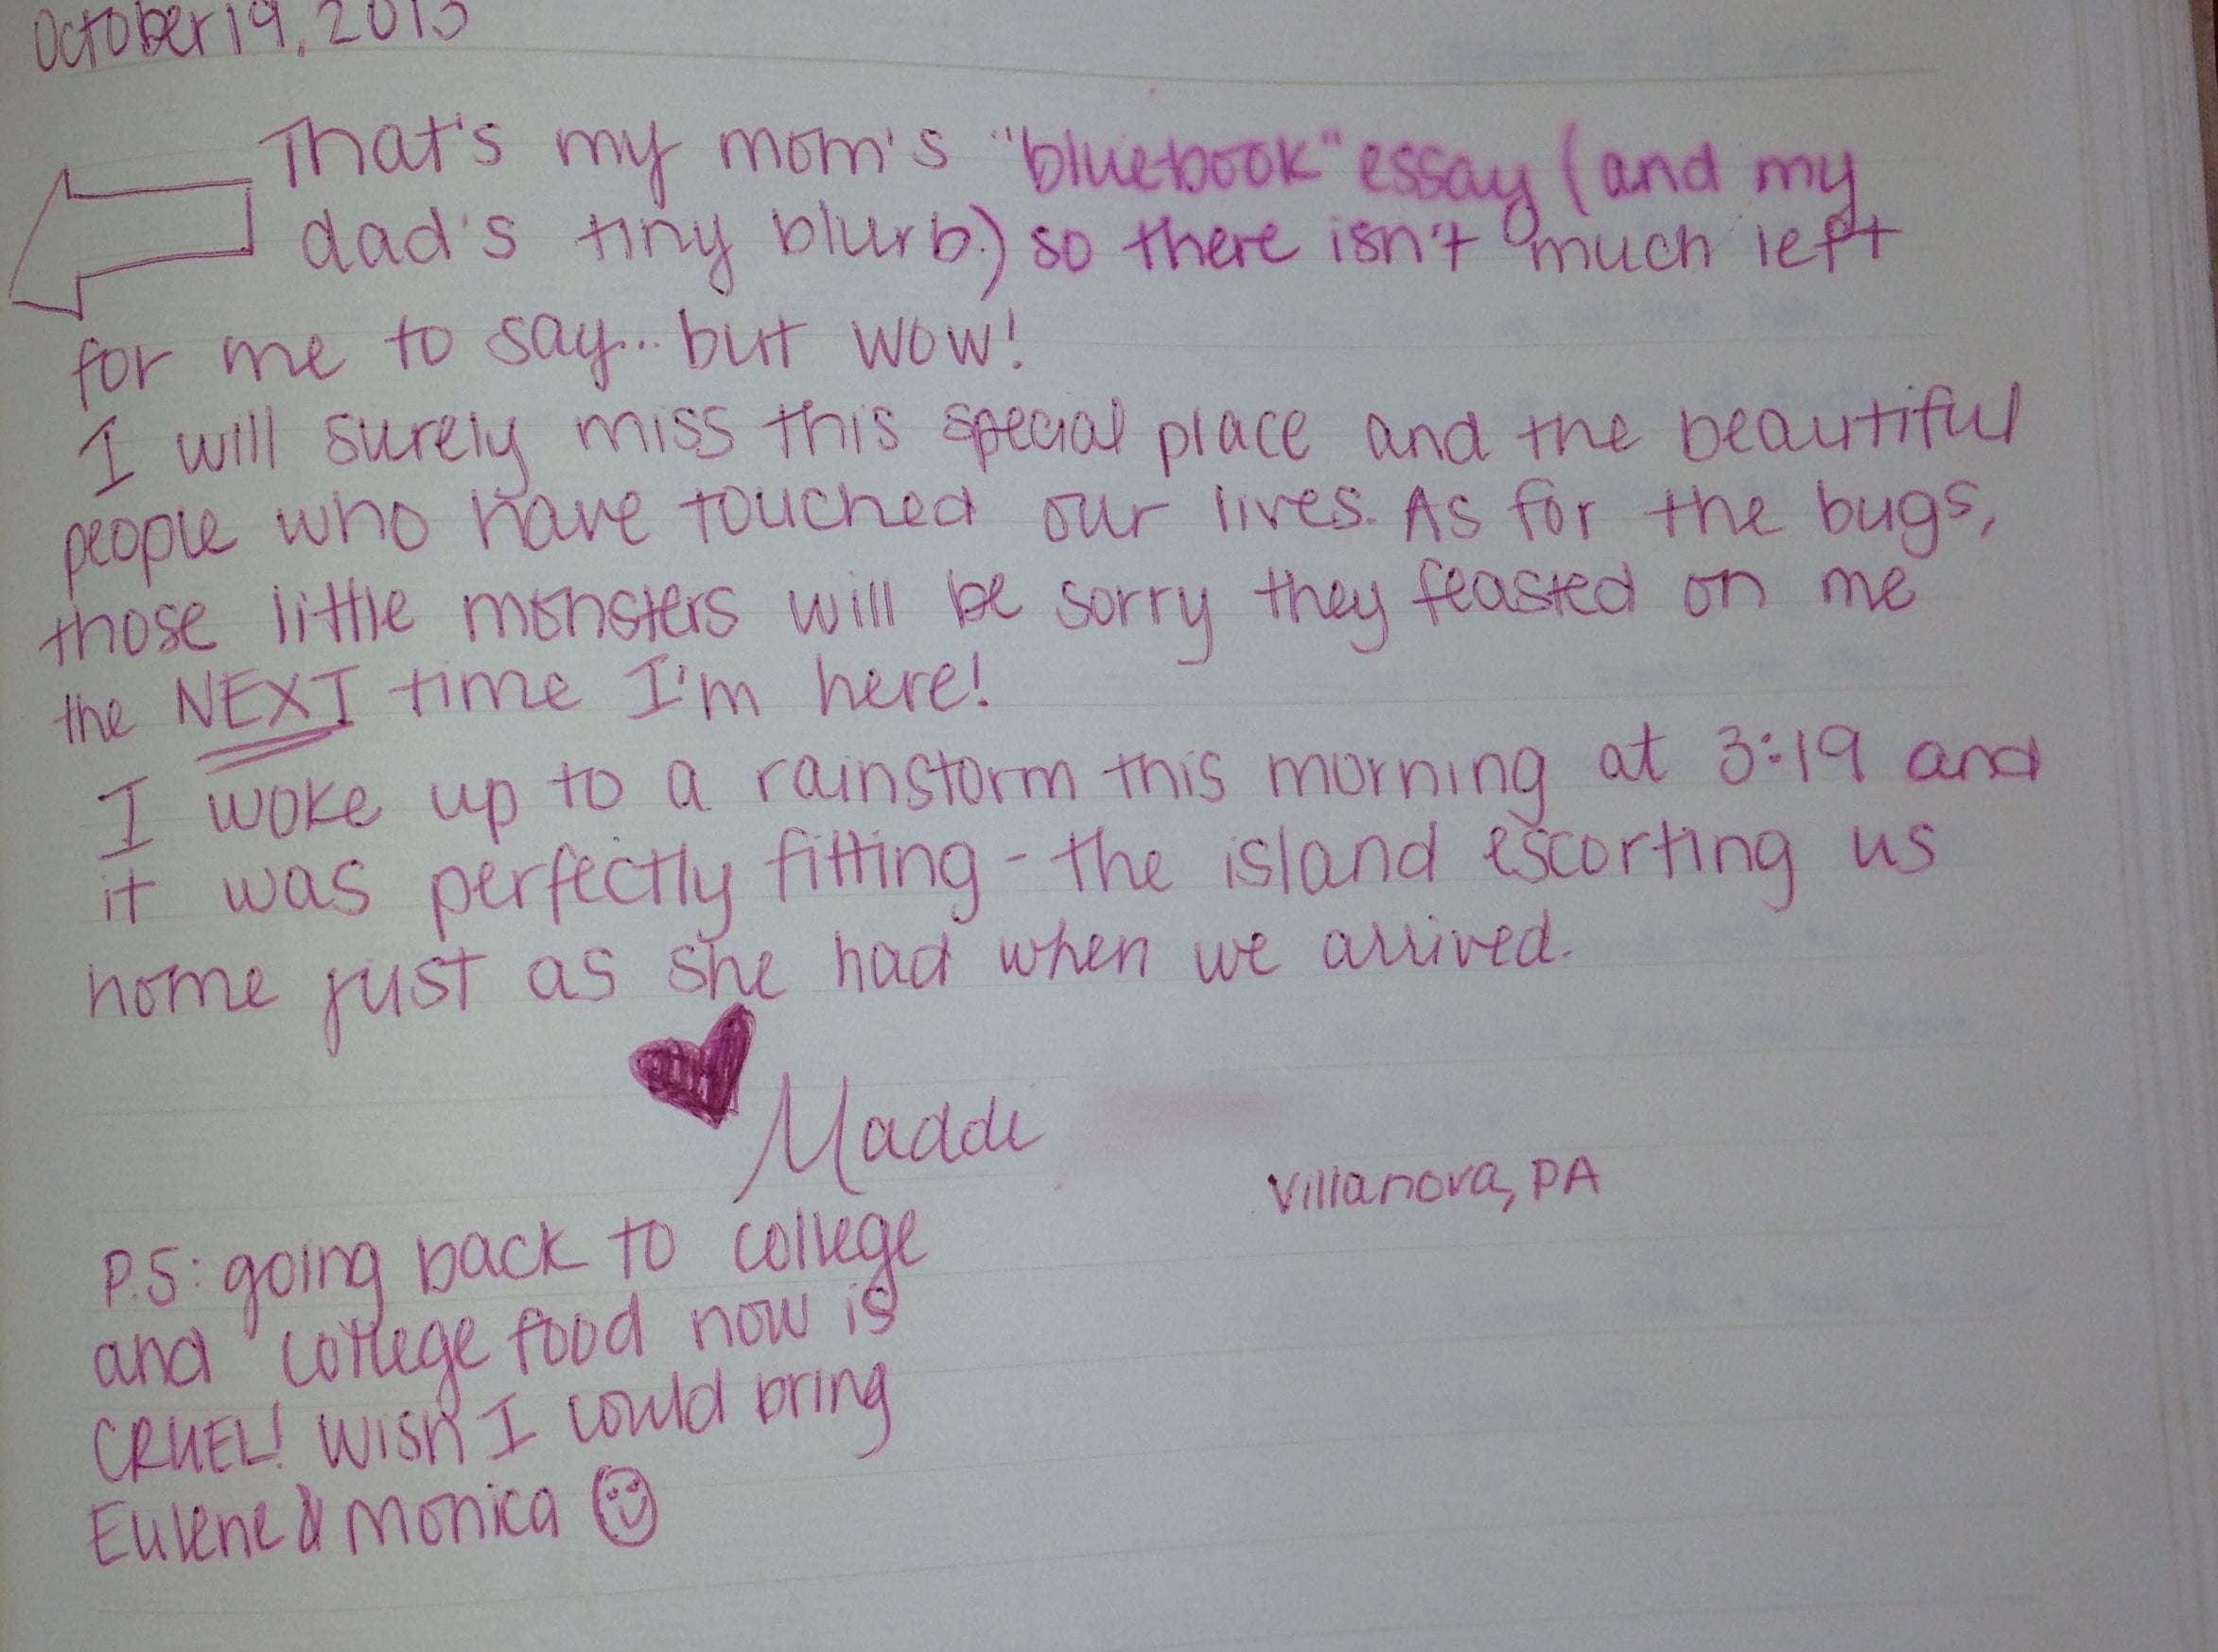 October 19, 2013
That's my mom's "bluebook" essay (and my
dad's tiny blurb.) so there isn't much left
for me to say... but wow!
I will surely miss this special place and the beautiful
people who have touched our lives. As for the bugs,
those little monsters will be sorry they feasted on me
the NEXT time I'm here!
I woke up to a rainstorm this morning at 3:19 and
it was perfectly fitting - the island escorting us
home just as she had when we arrived.
Maddi
Villanova, PA
P.S: going back to college
and college food now is
CRUEL! Wish I could bring
Eulene & Monica